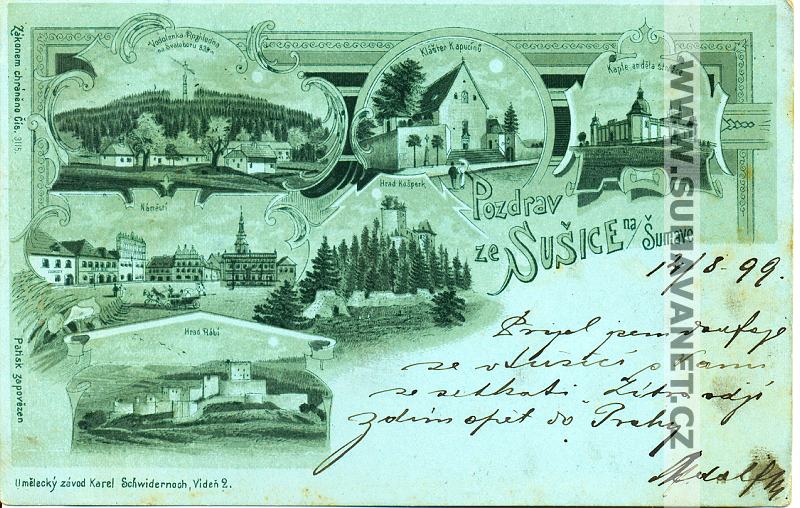 Zákonem chráněno Čís. 3115.
Vodolenka Rozhledna
na Svatoboru 839 m
Klášter Kapucínů
Kaple anděla Strážce
Náměstí
Hrad Kašperk
Pozdrav
ze SUŠICE na/Šumavě
Hrad Rábí
14/8-99.
Přijel jsem doufaje
se v Sušici s Vámi
se setkati. Zítra odjí
zdím opět do Prahy
Adolf
Patisk zapovězen
Umělecký závod Karel Schwidernoch, Vídeň 2.
WWW.SUMAVANET.CZ